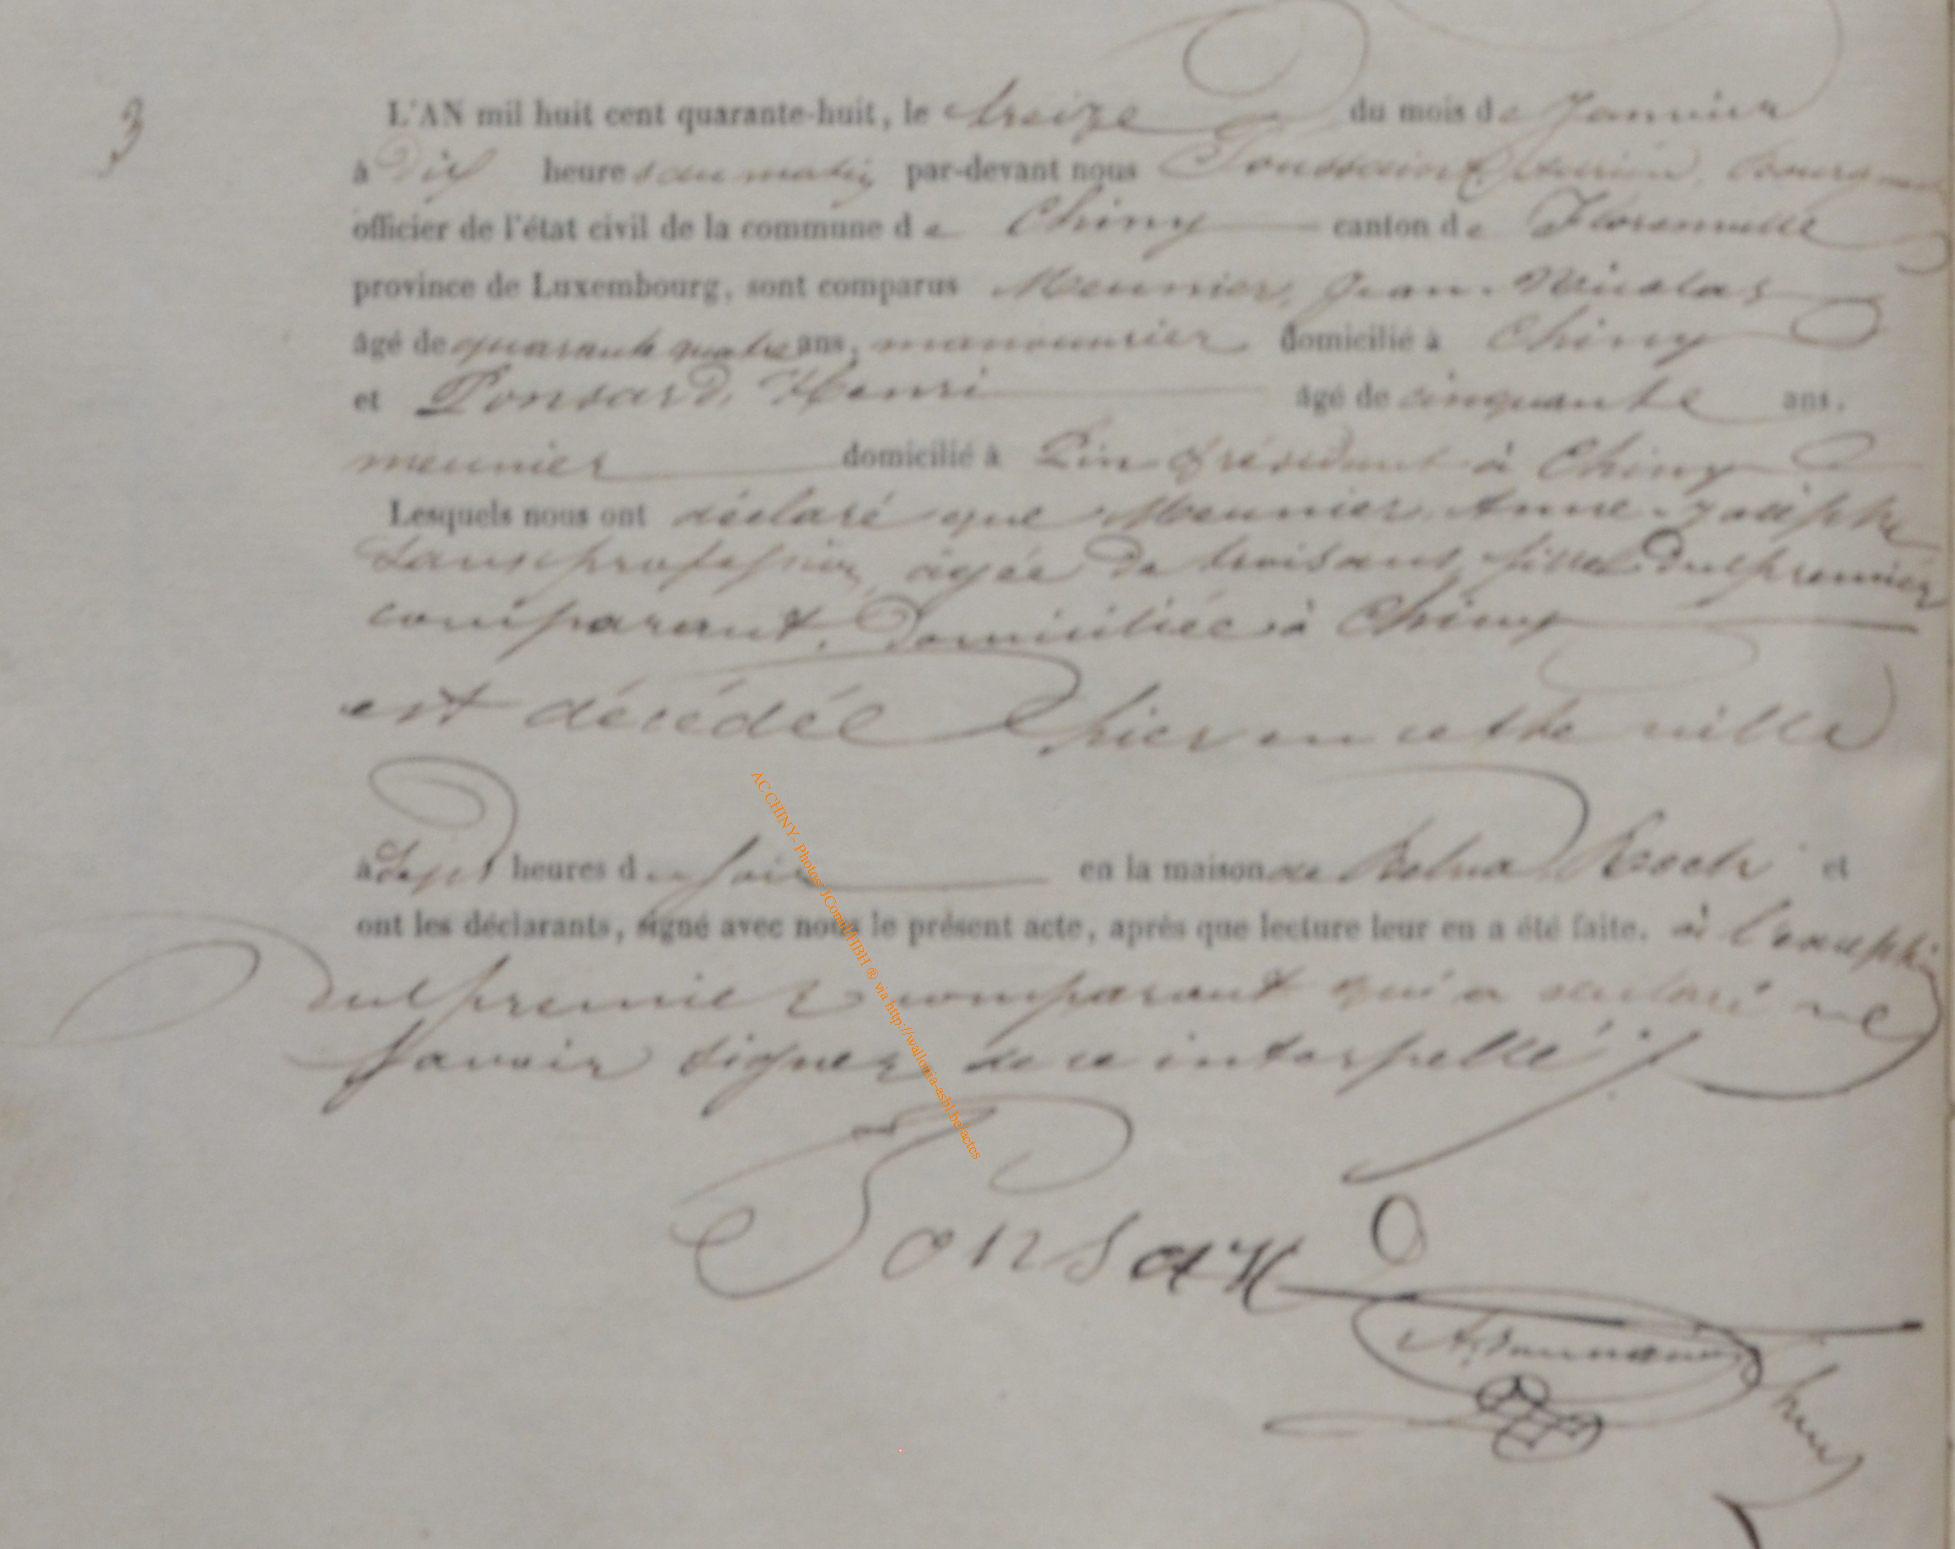 3
L'AN mil huit cent quarante-huit, le treize du mois de Janvier
à Dix heures au matin par-devant nous Toussaint Adrien, bourgmestre
officier de l'état civil de la commune de Chiny canton de Florenville
province de Luxembourg, sont comparus Meunier, Jean-Nicolas
âgé de quarante quatre ans, manouvrier domicilié à Chiny
et Ponsard, Henri âgé de cinquante ans,
meunier domicilié à Pin & résidant à Chiny
Lesquels nous ont déclaré que Meunier, Anne-Josèphe
sans profession, âgée de trois ans, fille du premier
comparant, domiciliée à Chiny
est décédée hier en cette ville
à sept heures du soir en la maison de Roch et
ont les déclarants, signé avec nous le présent acte, après que lecture leur en a été faite, à l'exception
du premier comparant qui a déclaré ne
savoir signer de ce interpellé
Ponsard
AC CHINY- Photos ®via http://wallonia-asbl.be/actes